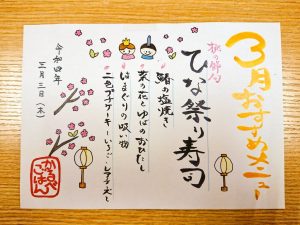 3月おすすめメニュー
桃の節句
ひな祭り寿司
鰆の塩焼き
菜の花とゆばのおひたし
はまぐりの吸い物
二色プチケーキ
令和四年
三月三日(木)